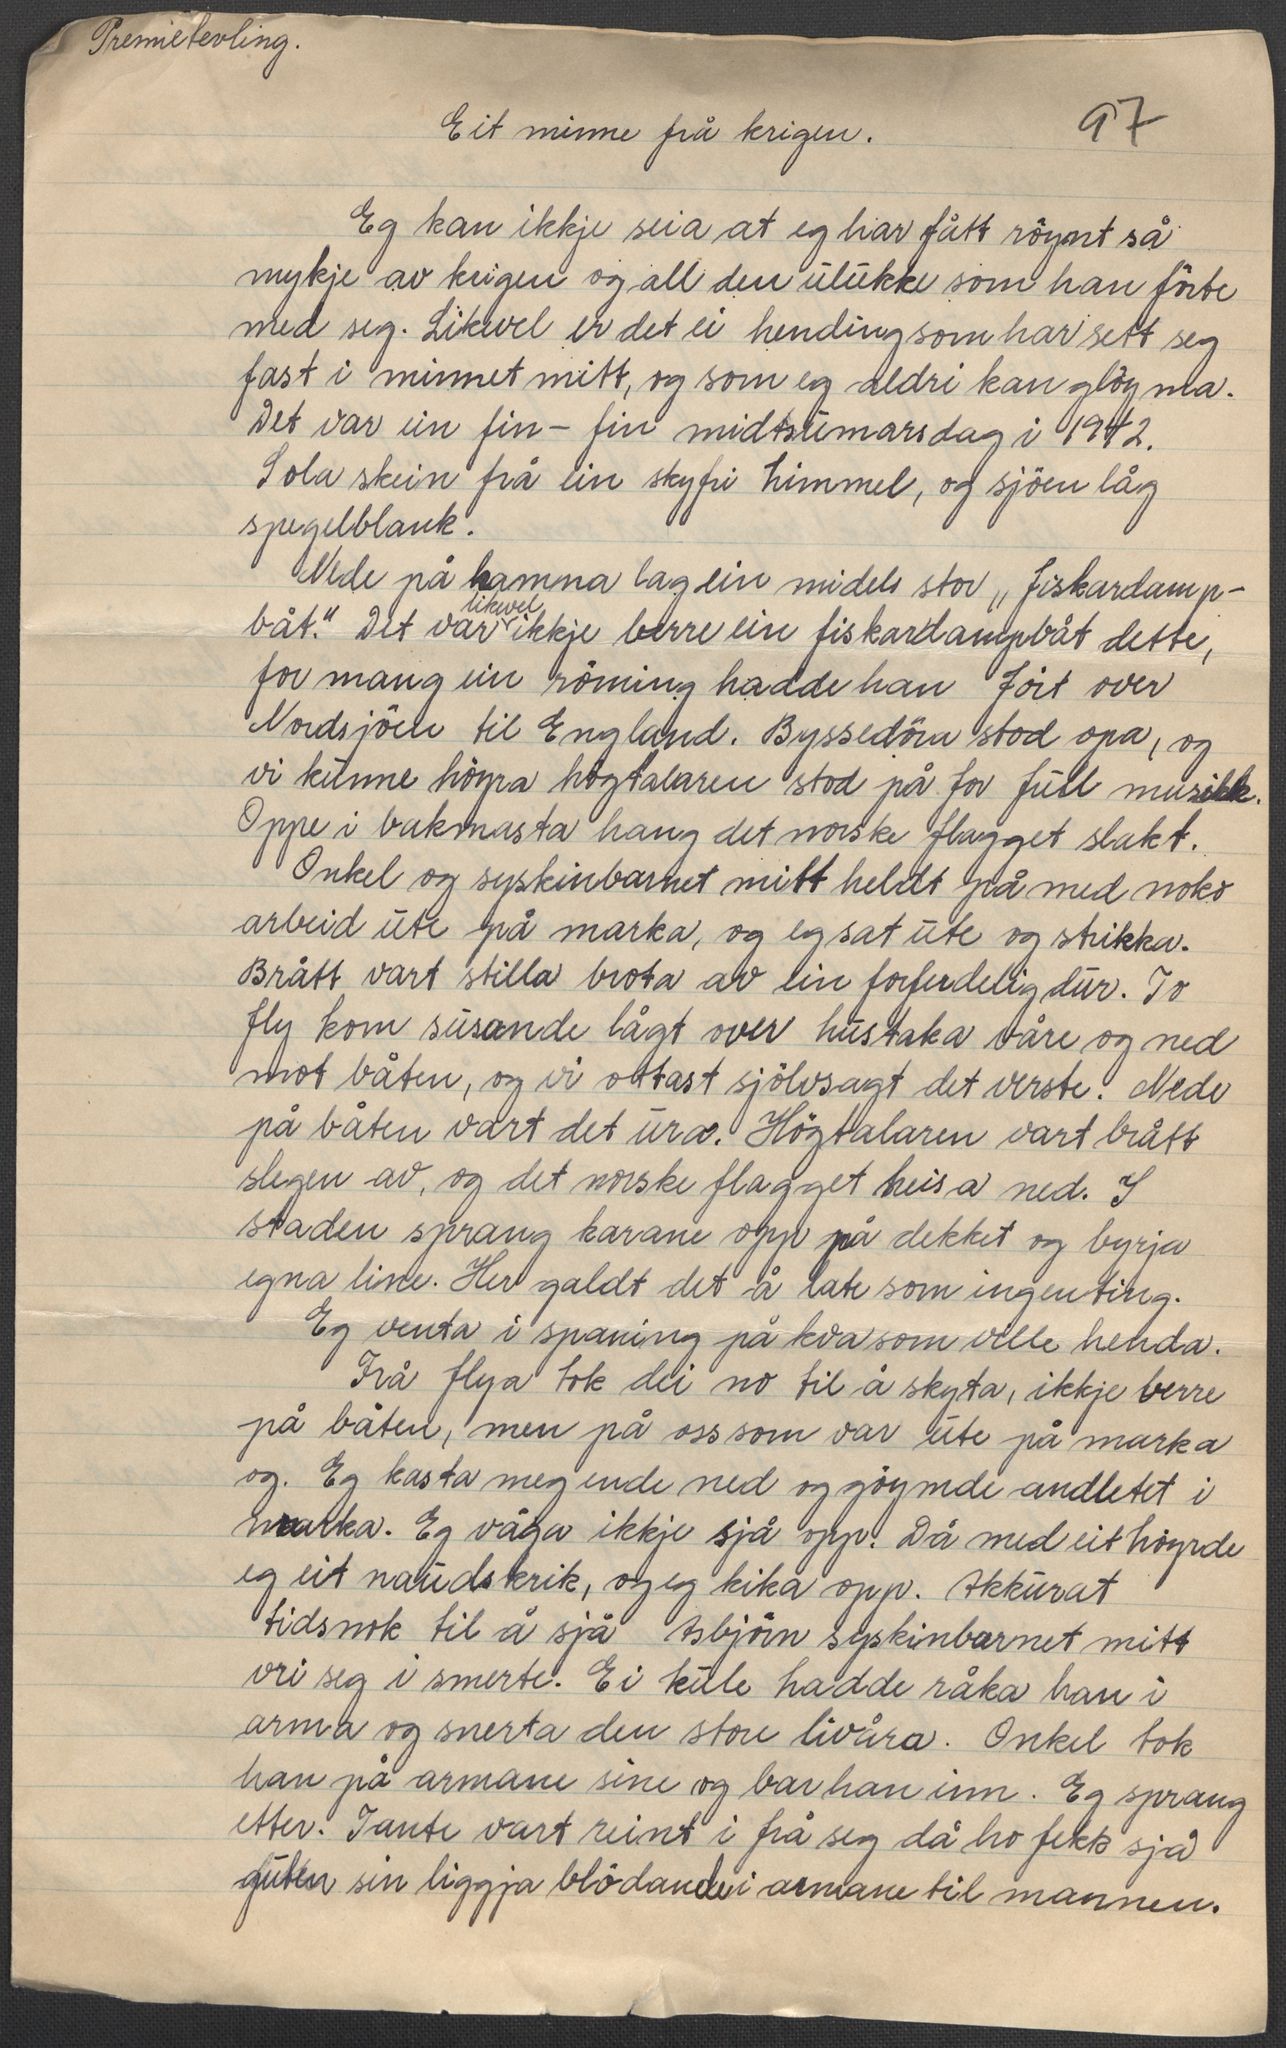 Premietevling.
97
Eit minne frå krigen.
Eg kan ikkje seia at eg har fått röynt så
mykje av krigen og all den ulukke som han förte
med seg. Likevel er det ei hending som har sett seg
fast i minnet mitt, og som eg aldri kan glöyma.
Det var ein fin-fin midtsumarsdag i 1942.
Sola skein frå ein skyfri himmel, og sjöen låg
spegelblank.
Nede på hamna lag ein midels stor „fiskardamp-
båt." Det var likevel ikkje berre ein fiskardampbåt dette,
for mang ein röming hadde han fört over
Nordsjöen til England. Byssedöra stod opa, og
vi kunne höyra högtalaren stod på for full musikk.
Oppe i bakmasta hang det norske flagget slakt.
Onkel og syskinbarnet mitt heldt på med noko
arbeid ute på marka, og eg sat ute og strikka.
Brått vart stilla brota av ein forferdelig dur. To
fly kom susande lågt over hustaka våre og ned
mot båten, og vi ottast sjölvsagt det verste. Nede
på båten vart det ura. Högtalaren vart brått
slegen av, og det norske flagget heisa ned. I
staden sprang karane opp på dekket og byrja
egna line. Her galdt det å late som ingenting.
Eg venta i spaning på kva som ville henda.
Frå flya tok dei no til å skyta, ikkje berre
på båten, men på oss som var ute på marka
og. Eg kasta meg ende ned og göymde andletet i
marka. Eg våga ikkje sjå opp. Då med eit höyrde
eg eit naudskrik, og eg kika opp. Akkurat
tidsnok til å sjå Asbjörn syskinbarnet mitt
vri seg i smerte. Ei kule hadde råka han i
arma og snerta den store livåra. Onkel tok
han på armane sine og bar han inn. Eg sprang
etter. Tante vart reint i frå seg då ho fekk sjå
guten sin liggja blödande i armane til mannen.